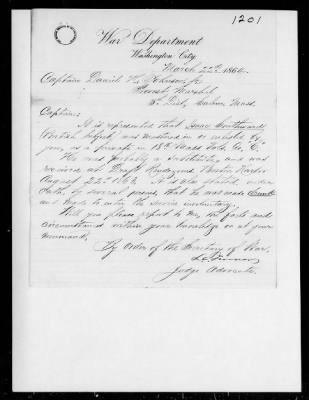 1201
War Department
Washington City
March 22nd 1866.
Captain Daniel H. Johnson, Jr
Provost Marshal
5th Dist, Salem Mass.
Captain:
It is represented that Isaac
British Subject was mustered in or enlisted by
you, as a private in 18th Mass Vols. Co. "C."
He was probably a Substitute, and was
received at Draft Rendezvous Boston Harbor
August It is also stated, under
oath, by several persons that he was made drunk
and made to enter the service involuntary.
Will you please report to me, the facts and
circumstances within your knowledge or at your
command,
By Order of the Secretary of War.
Judge Advocate,